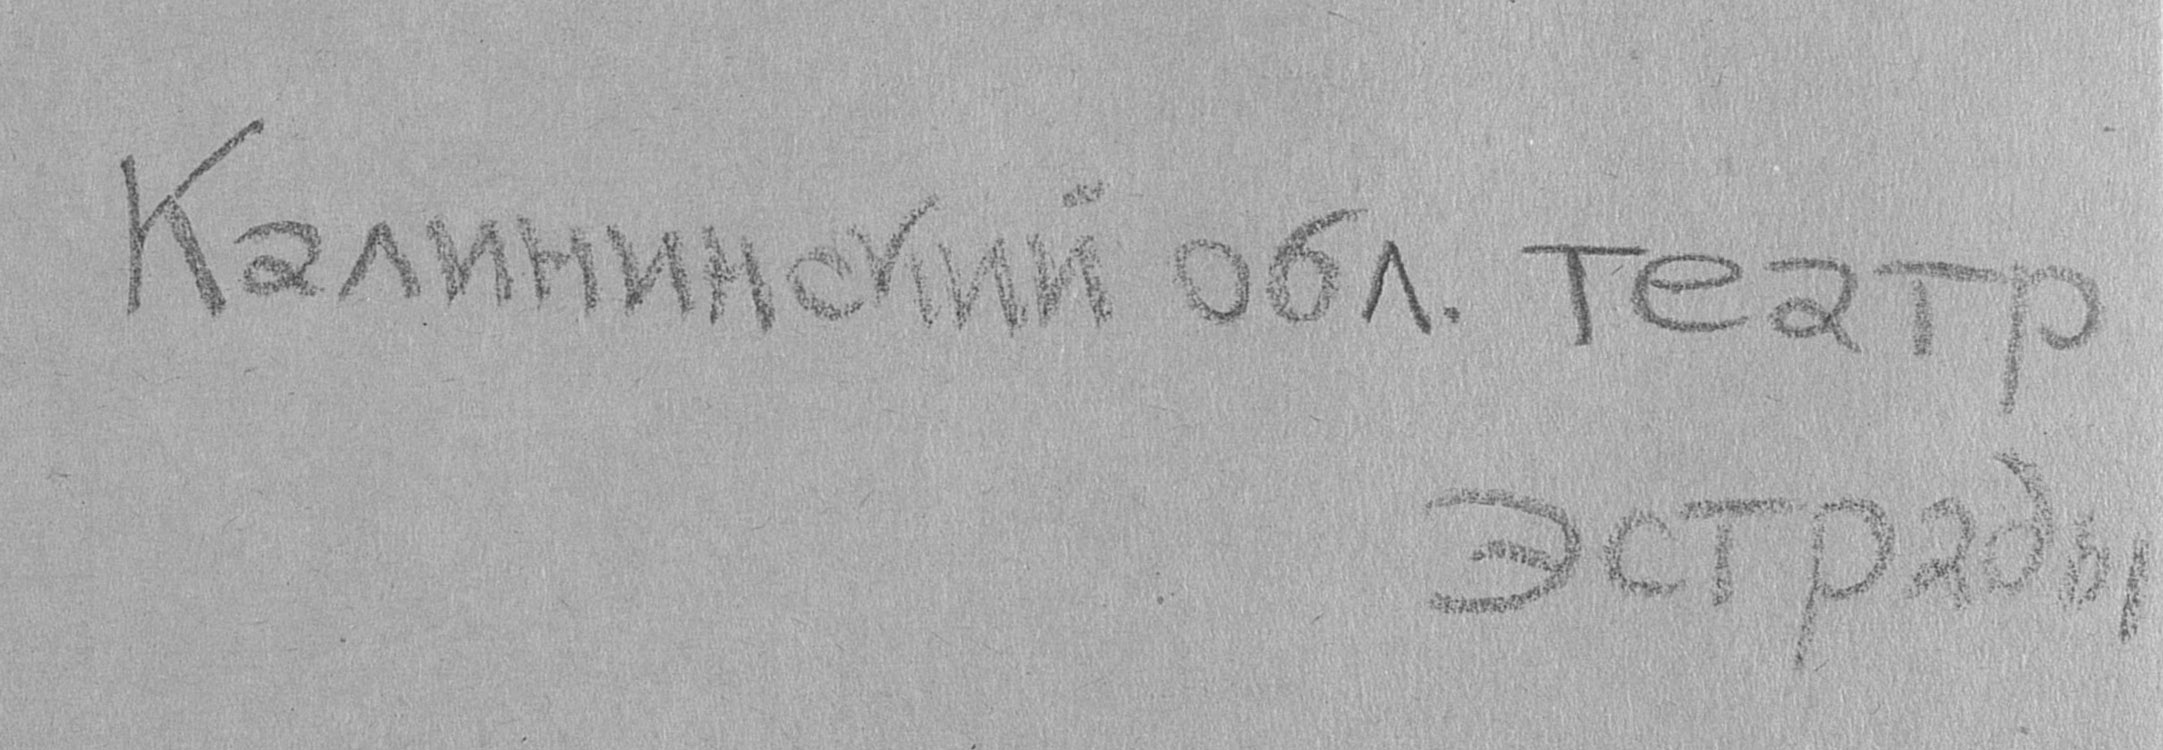 Калининский обл. театр
эстрады